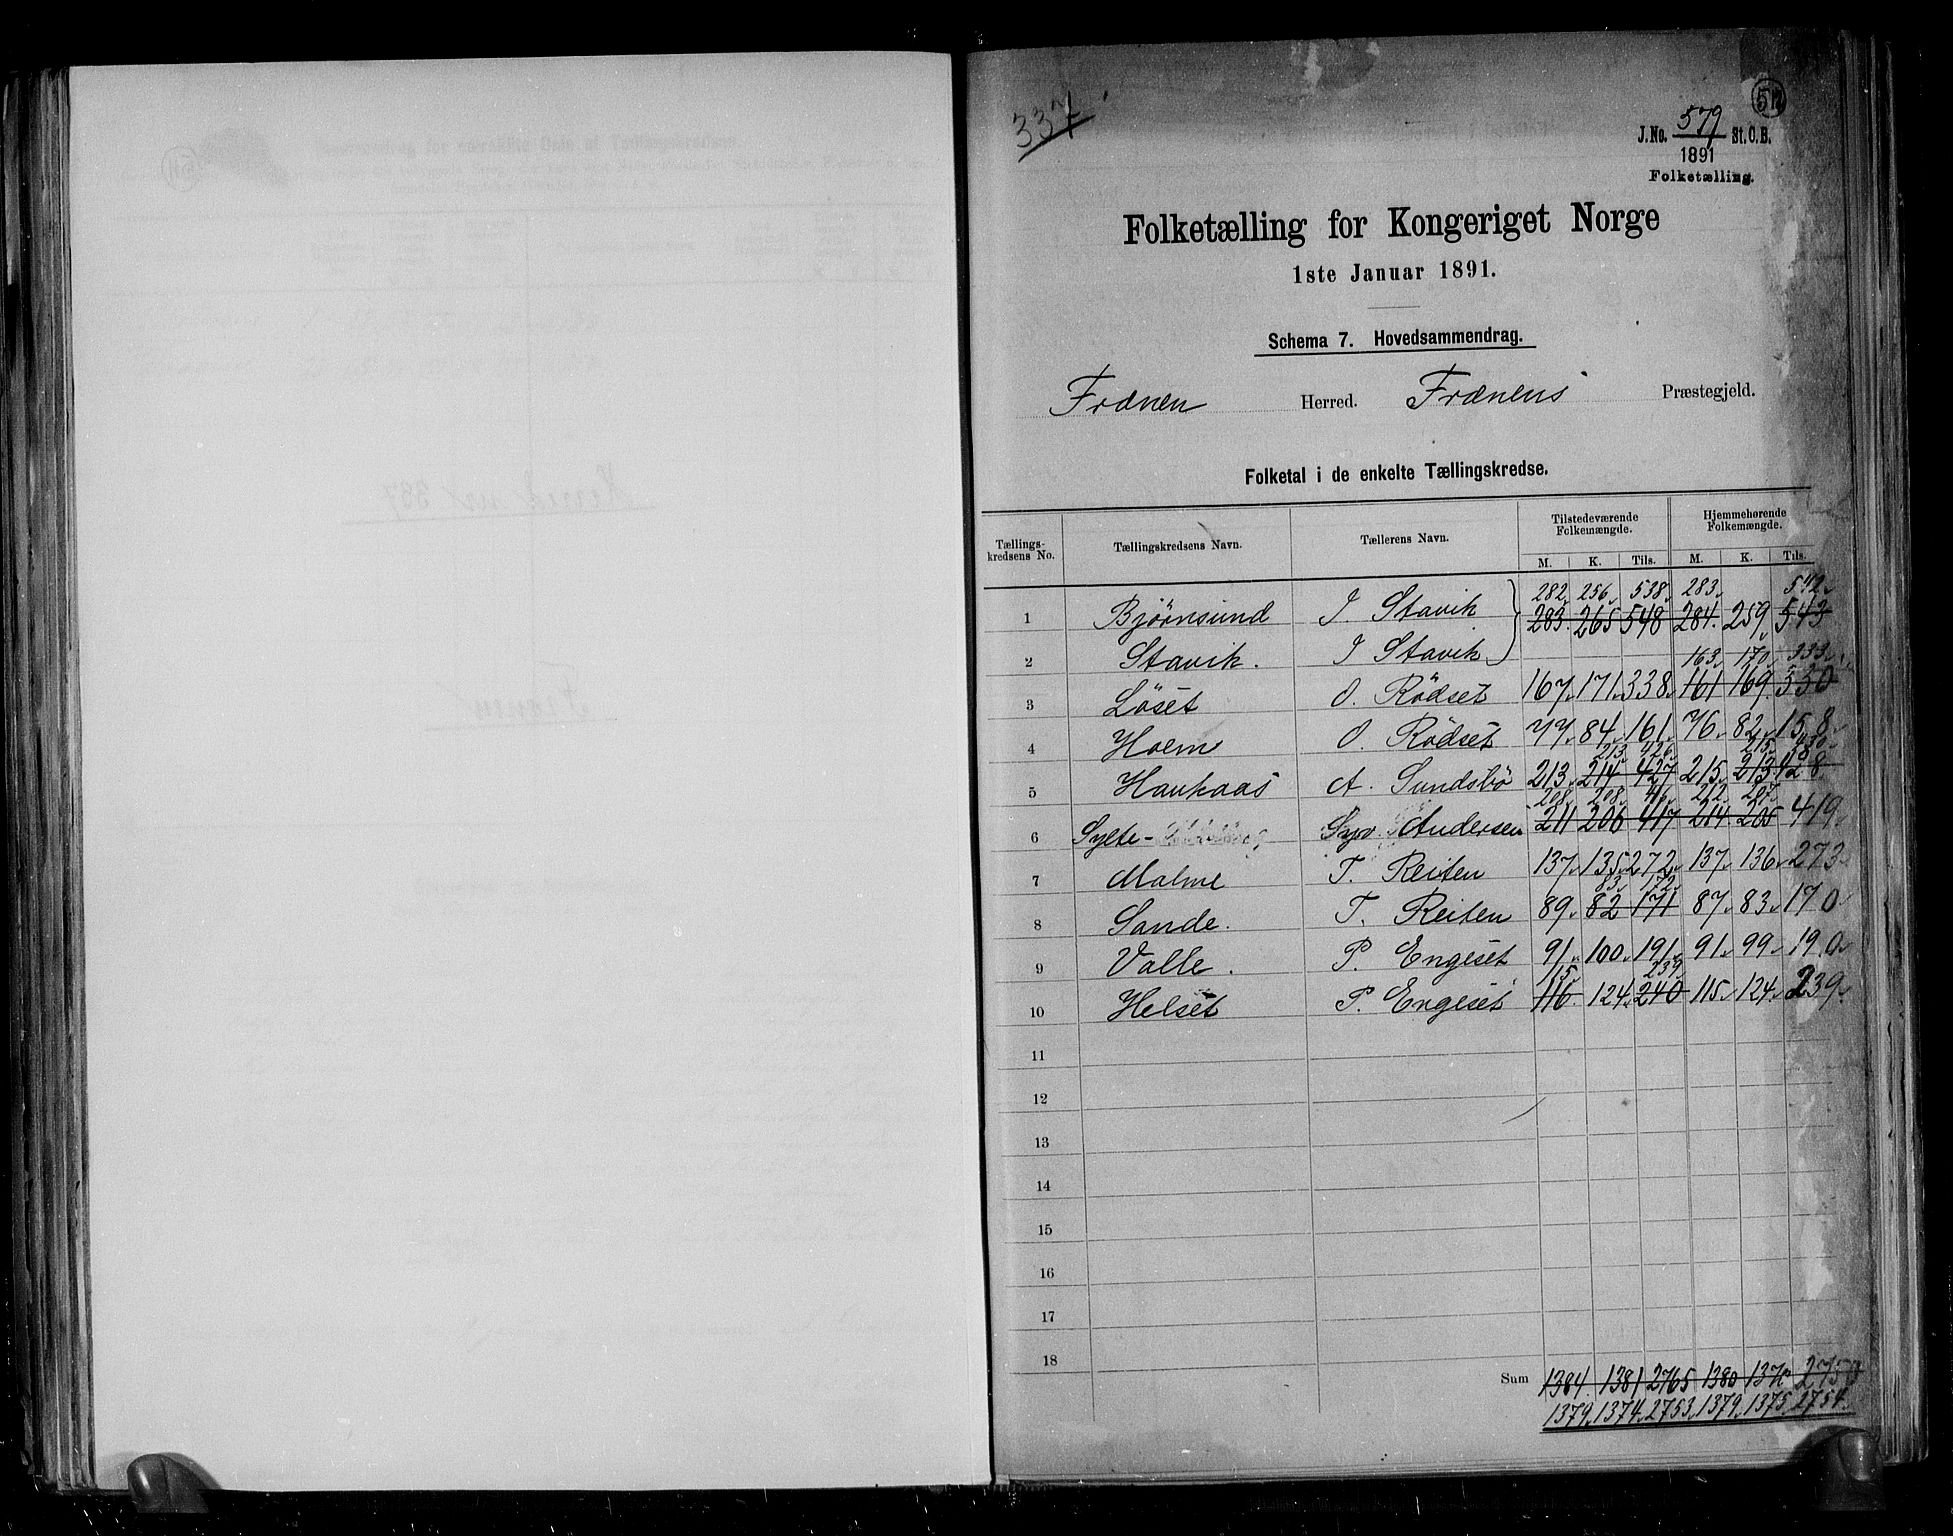 337
J. No. 579 St. C. B.
1891
Folketælling.
Folketælling for Kongeriget Norge
1ste Januar 1891.
Schema 7. Hovedsammendrag.
Frænen Herred. Frænens Præstegjeld.
Folketal i de enkelte Tællingskredse.
Tællings-kredsens No. Tællingskredsens Navn. Tællerens Navn. Tilstedeværende Folkemængde. Hjemmehørende Folkemængde.
M. K. Tils. M. K. Tils.
282 256 538 283 542
1 Bjørnsund J. Stavik 283 265 548 284 259 543
2 Stavik. J Stavik
163 170 333
3 Löset O. Rödset 167 171 338 161 169 330
4 Holm O. Rödset 77 84 161 76 82 158
213 426 215 430
5 Haukaas A. Sundsbö 213 214 427 215 213 428
208 208 416 212 207
6 Sylte- Syv. Andersen 211 206 417 214 205 419
7 Malme T. Reiten 137 135 272 137 136 273
83 172
8 Sande. T. Reiten 89 82 171 87 83 170
9 Valle. P. Engeset 91 100 191 91 99 190
115 239
10 Helset P. Engeset 116 124 240 115 124 239
11
12
13
14
15
16
17
18
Sum 1384 1381 2765 1380 1370 2750
1379 1374 2753 1379 1375 2754